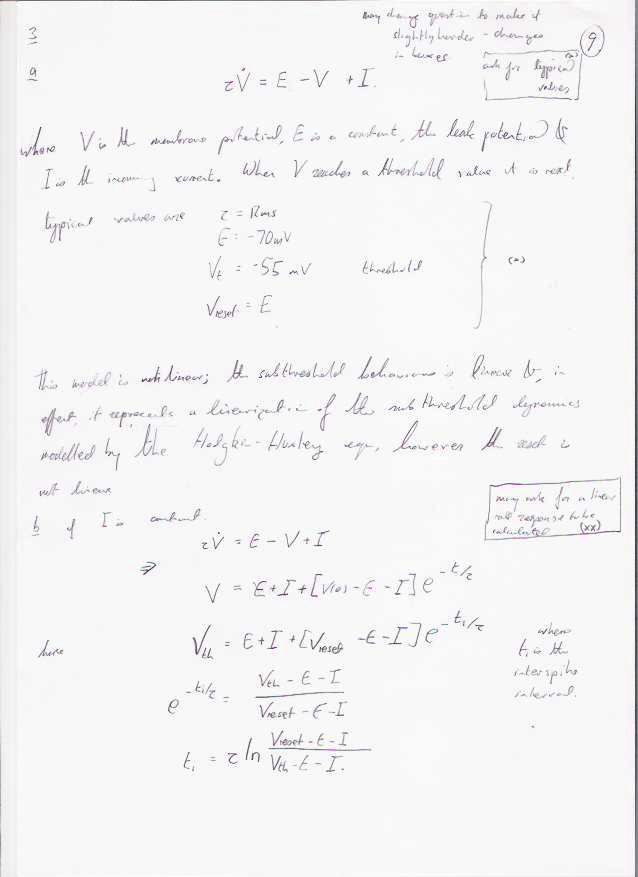 may change question to make it
slightly harder - changes
in boxes.
9
3
a
ask for typical (*)
values
τV̇ = E - V + I.
where V is the membrane potential, E is a constant, the leak potential &
I is the incoming current. When V reaches a threshold value it is reset.
typical values are τ = 12ms
E = -70mV
V_t = -55 mV threshold (*)
V_reset = E
This model is not linear; the subthreshold behaviour is linear &, in
effect, it represents a linearization of the subthreshold dynamics
modelled by the Hodgkin-Huxley eqn, however the reset is
not linear
may ask for a linear
response to be
calculated (xx)
b if I is constant.
τV̇ = E - V + I
⇒ V = E + I + [V(0) - E - I] e^{-t/τ}
here V_th = E + I + [V_reset - E - I] e^{-t₁/τ}
where
t₁ is the
interspike
interval.
e^{-t₁/τ} = (V_th - E - I) / (V_reset - E - I)
t₁ = τ ln (V_reset - E - I) / (V_th - E - I).